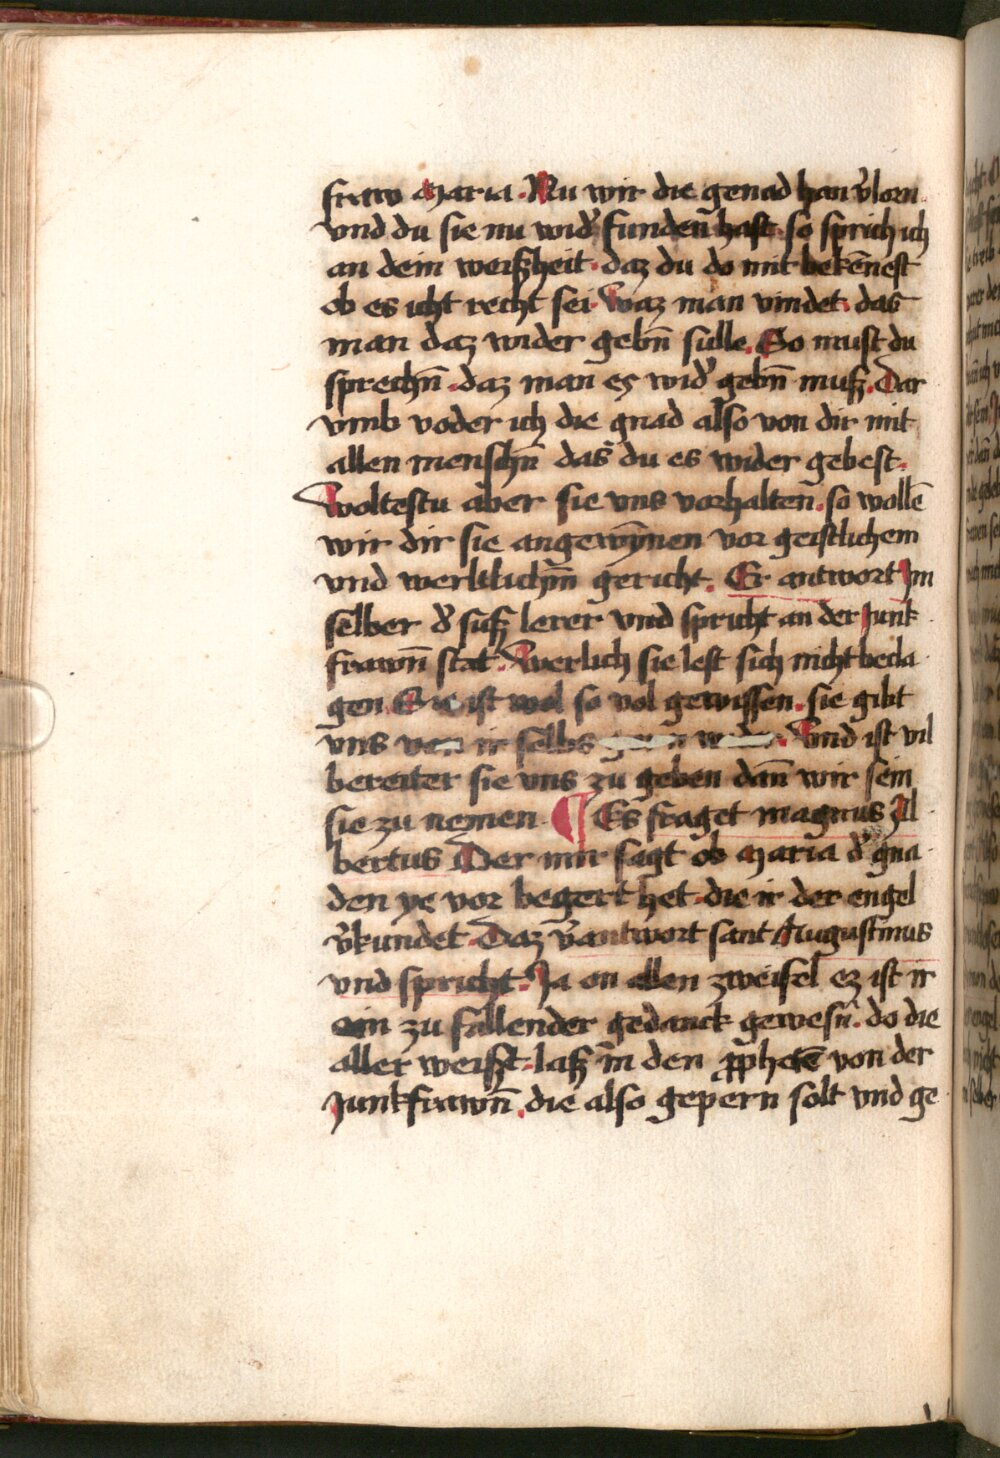 fraw Maria. Nu wir die genad han v̉lorn
vnd du sie nu wid̉ funden hast. so sprich ich
an dein weiſzheit. daz du do mit bekēnest
ob es icht recht sei. Waz man vindet. das
man daz wider gebn̄ sulle. So must du
sprechn̄. daz man es wid̉ gebn̄ muſz. Dar
vmb voder ich die gnad also von dir mit
allen menschn̄ das du es wider gebest.
Woltestu aber sie vns vorhalten. so wollē
wir dir sie angewȳnen vor geistlichem
vnd werltlichm̄ gericht. Er antwort Im
selber d̉ suſz lerer vnd spricht an der Junk
frawn̄ stat. Werlich sie lest sich nicht beda
gen. Sie ist wol so vol gewissen. sie gibt
vns von ir selbs Vnd ist vil
bereiter sie vns zu geben dan̄ wir sein
sie zu nemen ¶ Es fraget magnus Al
bertus Der mir sagt ob Maria d̉ gna
den ye vor begert het. die ir der engel
v̉kundet. Daz v̉antwort sant Augustinus
vnd spricht. Ja on allen zweifel ez ist ir
ein zu fallender gedanck gewesn̄. do die
aller weiſzt. laſz in den ꝓphetē von der
Junkfrawn̄. die also gepern solt vnd ge